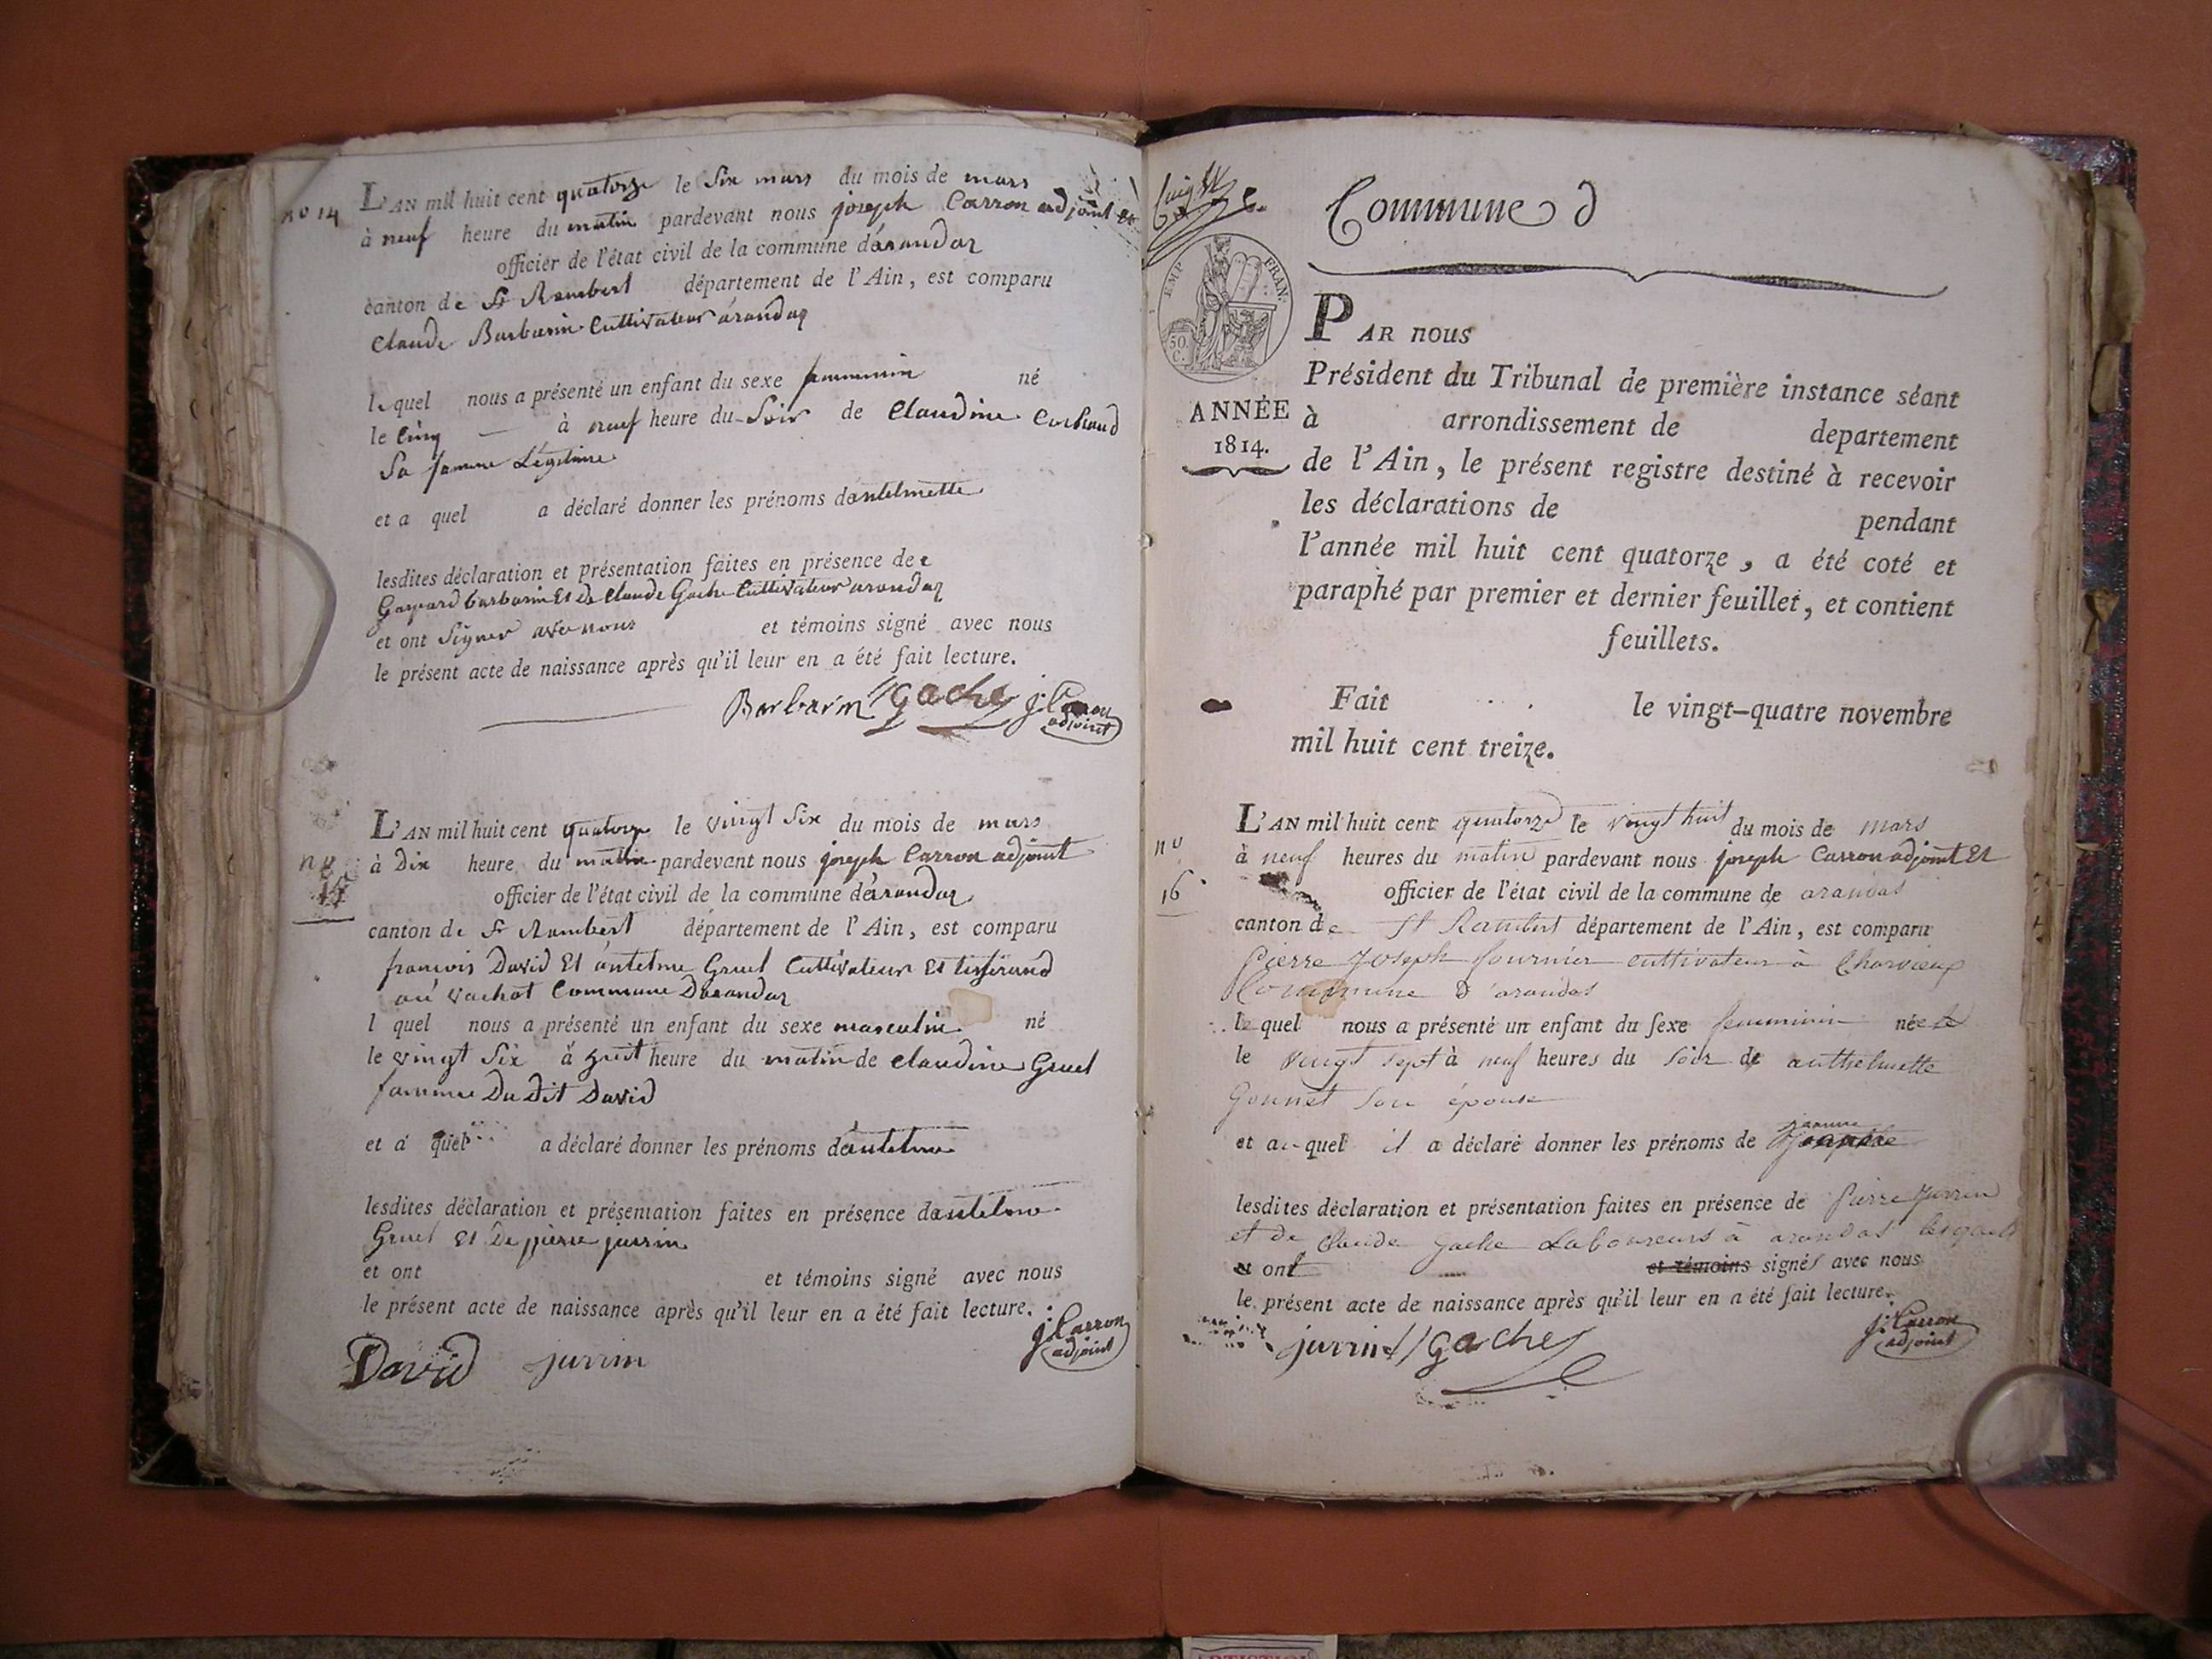 nº 14
L'AN mil huit cent quatorze le Six mars du mois de mars
à neuf heure du matin pardevant nous joseph Carron adjoint et
officier de l'état civil de la commune d'arandaz
canton de St Rambert département de l'Ain, est comparu
Claude Barbarin Cultivateur árandaz
lequel nous a présenté un enfant du sexe né
le Cinq — à neuf heure du Soir de Claudine
Sa famme Légitime
et a quel a déclaré donner les prénoms dantelmette
lesdites déclaration et présentation faites en présence de
Gaspard barbarin Et De Claude Gache Cultivateur arandaz
et ont Signer avec nous et témoins signé avec nous
le présent acte de naissance après qu'il leur en a été fait lecture.
Barbarin gache j: Carron
adjoint
nº
15
L'AN mil huit cent quatorze le vingt Six du mois de mars
à Dix heure du matin pardevant nous joseph Carron adjoint
officier de l'état civil de la commune dárandaz
canton de St Rambert département de l'Ain, est comparu
francois David Et ántelme Gruel Cultivateur Et tisserand
au vachat Commune Darandaz
l quel nous a présenté un enfant du sexe masculin né
le vingt Six à huit heure du matin de claudine Gruel
famme Du Dit David
et a quel a déclaré donner les prénoms dántelme
lesdites déclaration et présentation faites en présence dantelme
Gruel Et De pierre juvrin
et ont et témoins signé avec nous
le présent acte de naissance après qu'il leur en a été fait lecture.
j: Carron
adjoint
David juvrin
Commune d
EMP. FRAN.
50.
C.
PAR nous
Président du Tribunal de première instance séant
ANNÉE
1814.
à arrondissement de departement
de l'Ain, le présent registre destiné à recevoir
les déclarations de pendant
l'année mil huit cent quatorze, a été coté et
paraphé par premier et dernier feuillet, et contient
feuillets.
Fait le vingt-quatre novembre
mil huit cent treize.
nº
16
L'AN mil huit cent quatorze le vingt huit du mois de mars
à neuf heures du matin pardevant nous joseph Carron adjoint Et
officier de l'état civil de la commune de arandas
canton de St Rambert département de l'Ain, est comparu
Pierre Joseph fournier cultivateur à Charvieux
Commune d'arandas
lequel nous a présenté un enfant du sexe femminin née
le vingt sept à neuf heures du soir de anthelmette
Gonnet son épouse
et au quel il a déclaré donner les prénoms de jeanne
lesdites déclaration et présentation faites en présence de Pierre Juvrin
et de Claude Gache Laboureurs à arandas lesquels
et ont et témoins signés avec nous
le présent acte de naissance après qu'il leur en a été fait lecture.
juvrin gache j: Carron
adjoint